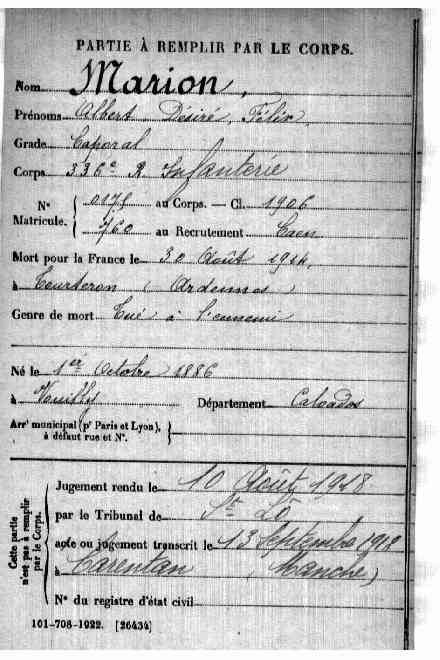 PARTIE À REMPLIR PAR LE CORPS.
Nom Marion,
Prénoms Albert Désiré, Félix
Grade Caporal
Corps 336e R. Infanterie
N° Matricule. { au Corps. — Cl. 1906
760 au Recrutement Caen
Mort pour la France le 30 Août 1914,
à Tourteron (Ardennes)
Genre de mort Tué à l'ennemi
Né le 1er Octobre 1886
à Neuilly Département Calvados
Arrt municipal (pr Paris et Lyon), à défaut rue et N°. {
Cette partie n'est pas à remplir par le Corps.
Jugement rendu le 10 Août 1918
par le Tribunal de St Lô
acte ou jugement transcrit le 13 Septembre 1918
à Carentan (Manche)
N° du registre d'état civil
101-708-1922. [26434]